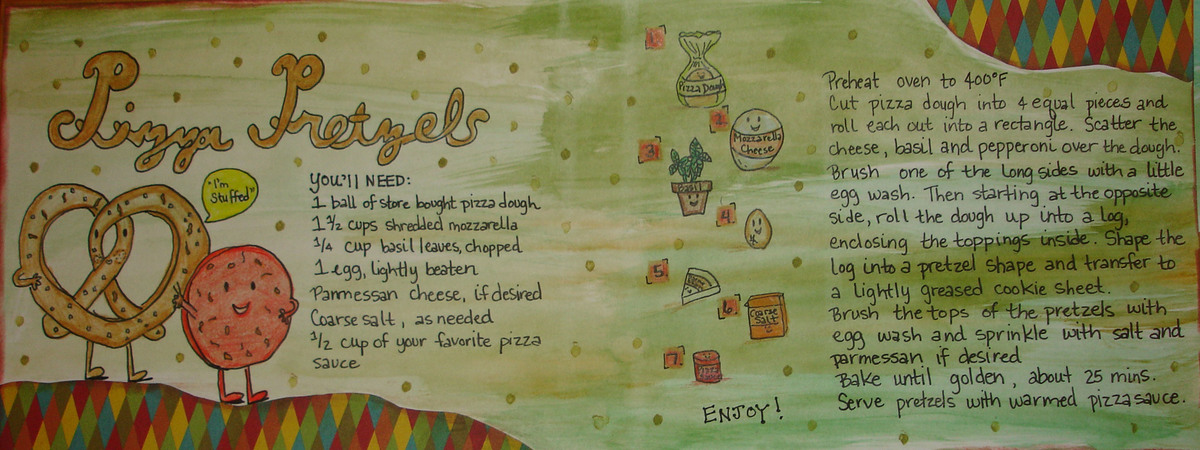 Pizza Pretzels
"I'm
Stuffed"
YOU'll NEED:
1 ball of store bought pizza dough
1 1/2 cups shredded mozzarella
1/4 cup basil leaves, chopped
1 egg, lightly beaten
Parmessan cheese, if desired
Coarse salt, as needed
1/2 cup of your favorite pizza
sauce
1
Pizza Dough
2
Mozzarella
Cheese
3
Basil
4
5
6
Coarse
Salt
7
ENJOY!
Preheat oven to 400°F
Cut pizza dough into 4 equal pieces and
roll each out into a rectangle. Scatter the
cheese, basil and pepperoni over the dough.
Brush one of the long sides with a little
egg wash. Then starting at the opposite
side, roll the dough up into a log,
enclosing the toppings inside. Shape the
log into a pretzel shape and transfer to
a lightly greased cookie sheet.
Brush the tops of the pretzels with
egg wash and sprinkle with salt and
parmessan if desired
Bake until golden, about 25 mins.
Serve pretzels with warmed pizza sauce.